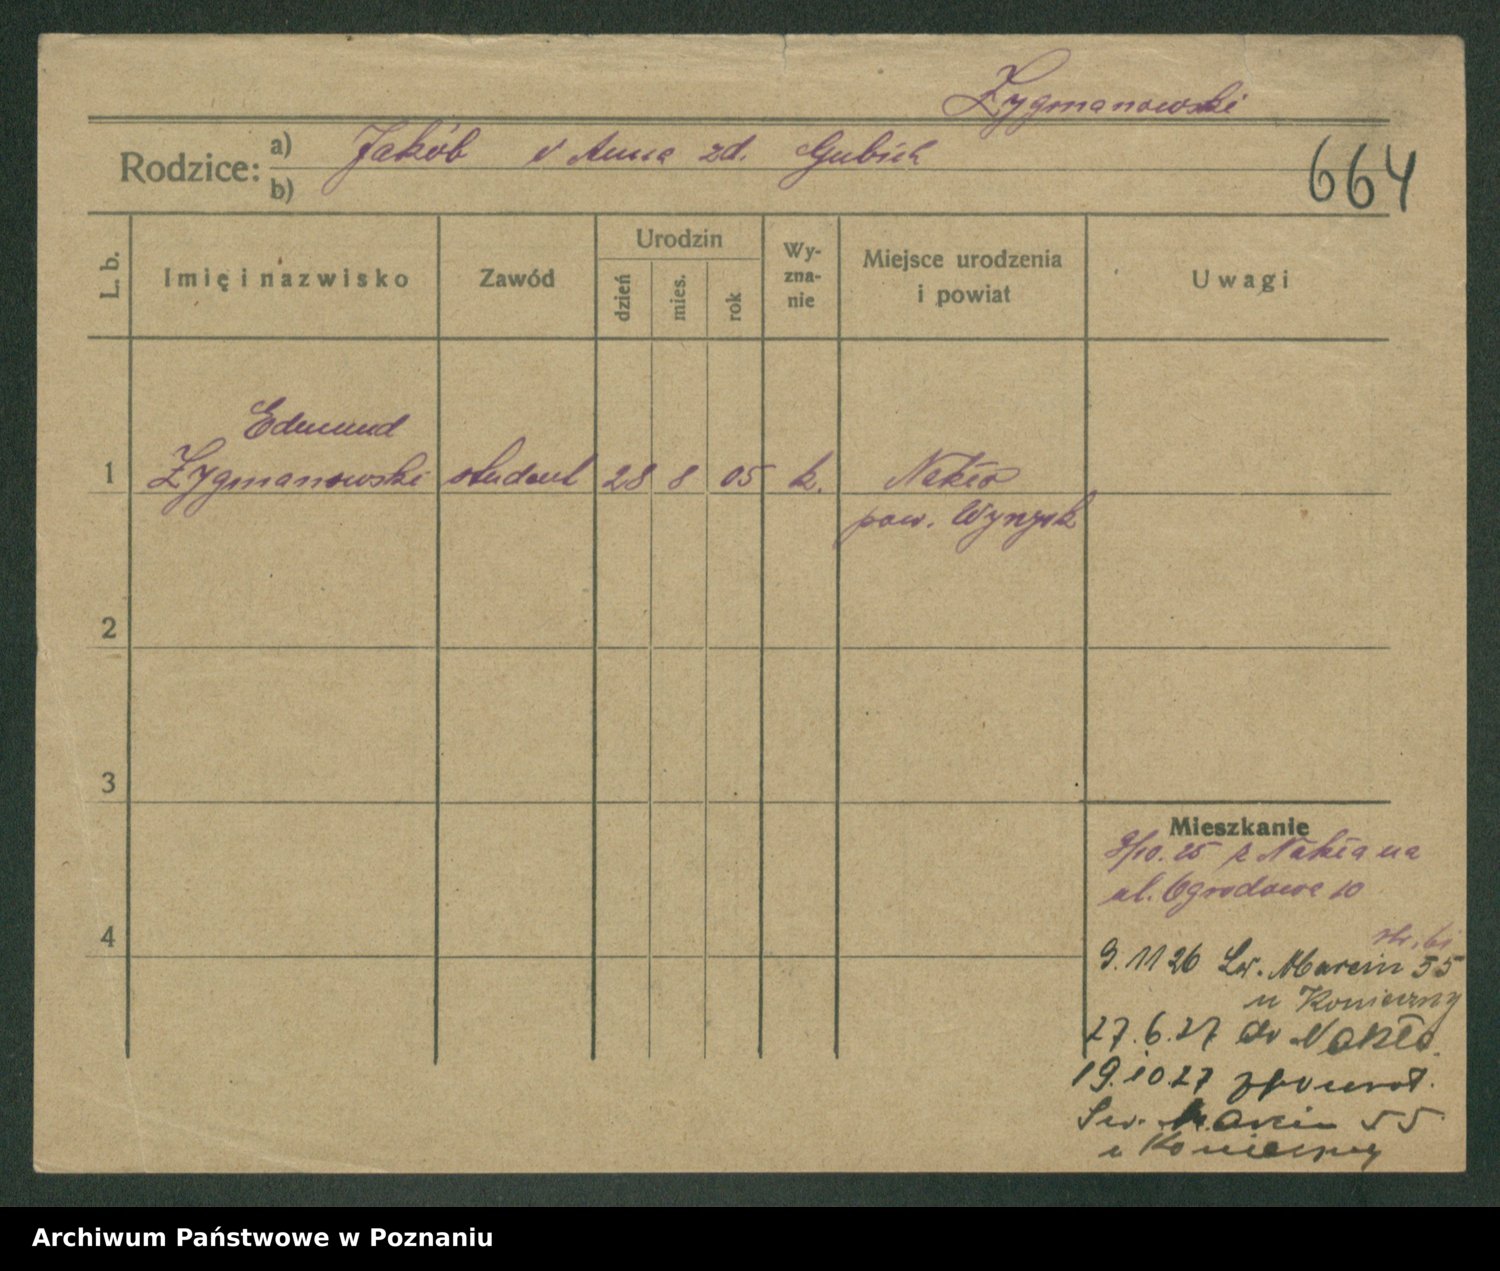 Zygmanowski
Rodzice: a) Jakób i Anna zd. Gubich
b)
664
L. b.
Imię i nazwisko
Zawód
Urodzin
dzień
mies.
rok
Wy-
zna-
nie
Miejsce urodzenia
i powiat
Uwagi
Edmund
1 Zygmanowski student 28 8 05 k. Nakło
pow. Wyrzysk
2
3
4
Mieszkanie
9/10.25 z Nakła na
ul. Ogrodowa 10
9.11 26 Św. Marcin 55
u Konieczny
27.6.27 do Nakło.
19.10 27 z powrot.
Św. Marcin 55
u Konieczny
Archiwum Państwowe w Poznaniu